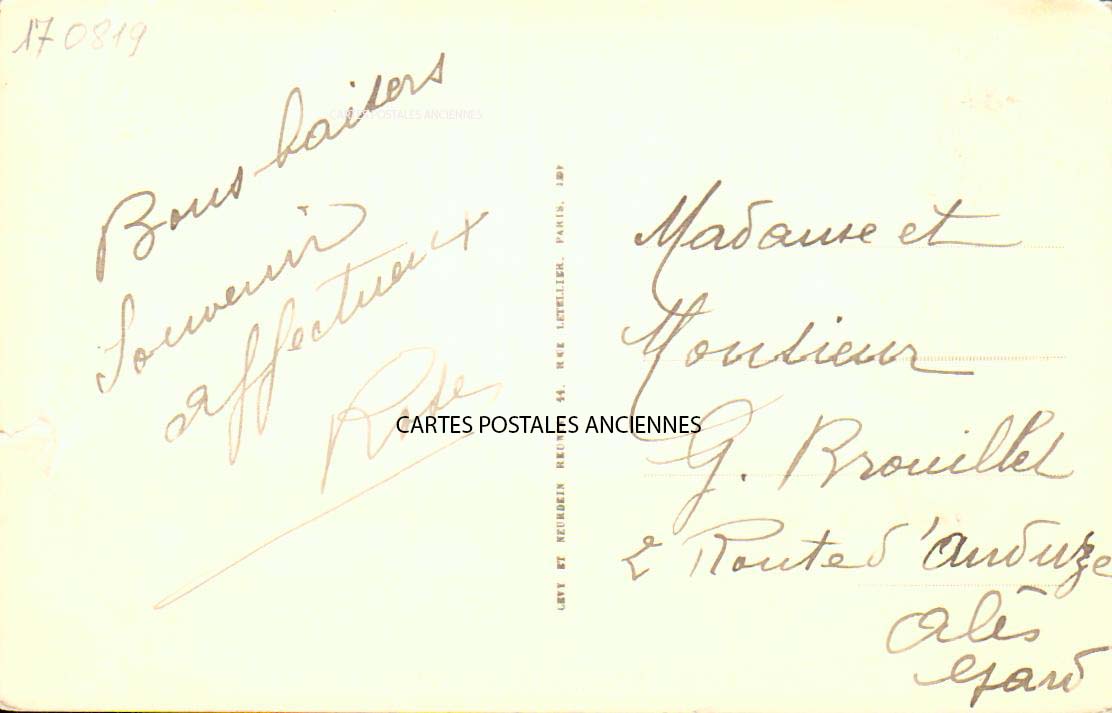 170819
Bons baisers
Souvenir
affectueux
Rose
CARTES POSTALES ANCIENNES
CARTES POSTALES ANCIENNES
LEVY ET NEURDEIN REUNIS 44, RUE LETELLIER, PARIS.
Madame et
Monsieur
G. Brouillet
2 Route d'Anduze
Alès
Gard